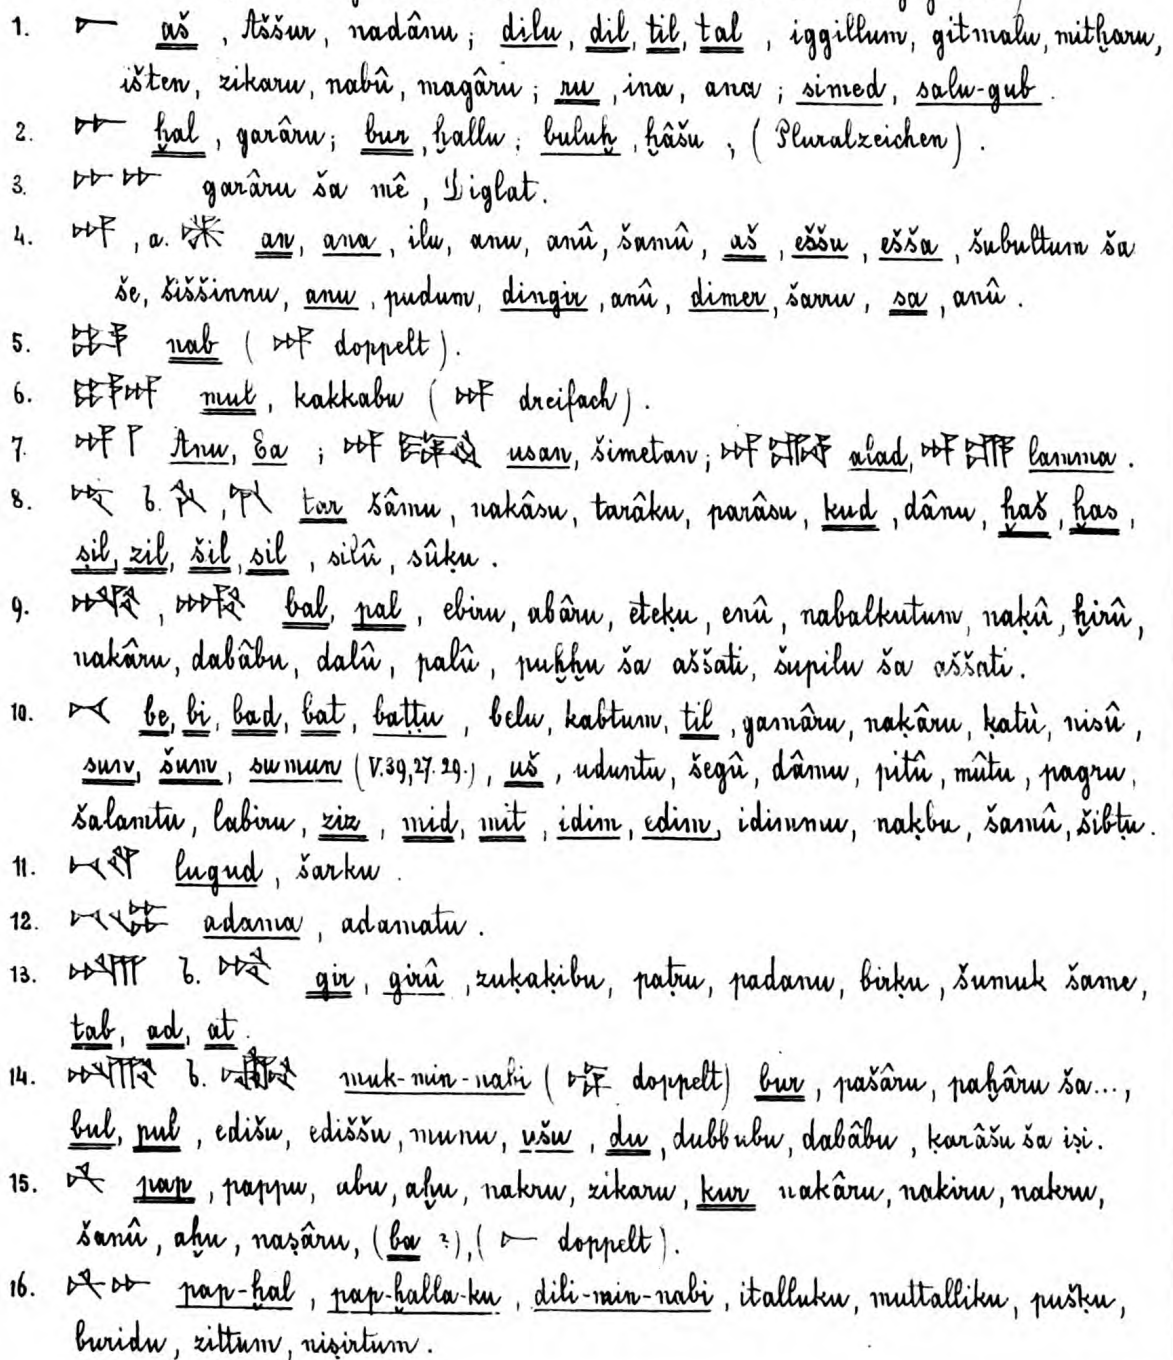 1. 𒀸 aš, Aššur, nadânu; dilu, dil, til, tal, iggillum, gitmalu, mitḫaru,
išten, zikaru, nabû, magâru; ru, ina, ana; simed, salu-gub.
2. 𒄬 ḫal, garâru; bur, ḫallu; buluḫ, ḫâšu; (Pluralzeichen).
3. 𒄬𒄬 garâru ša mê, Diglat.
4. 𒀭, a. an, ana, ilu, anu, anû, šamû, aš, eššu, ešša, šubultum ša
še, šiššinnu, anu, pudum, dingir, anû, dimer, šarru, sa, anû.
5. 𒀮 nab (𒀭 doppelt).
6. 𒀯 mul, kakkabu (𒀭 dreifach).
7. 𒀭𒁹 Anu, Ea; 𒀭 usan, šimetan; 𒀭 alad, 𒀭 lamma.
8. 𒋻 b. tar šâmu, nakâsu, tarâku, parâsu, kud, dânu, ḫaš, ḫas,
ṣil, zil, šil, sil, silû, sûḳu.
9. 𒁄, bal, pal, ebiru, abâru, eteḳu, enû, nabalkutum, naḳû, ḫirû,
nakâru, dabâbu, dalû, palû, puḫḫu ša aššati, šupilu ša aššati.
10. 𒁁 be, bi, bad, bat, baṭṭu, belu, kabtum, til, gamâru, naḳâru, ḳatù, nisû,
sun, šum, sumun (V.39,27.29.), uš, uduntu, šegû, dâmu, pitû, mûtu, pagru,
šalamtu, labiru, ziz, mid, mit, idim, edim, idimnu, naḳbu, šamû, šibṭu.
11. lugud, šarku.
12. adama, adamatu.
13. b. gir, girû, zuḳaḳibu, paṭru, padanu, birḳu, šumuk šame,
tab, ad, at.
14. b. muk-min-nabi ( doppelt) bur, pašâru, paḫâru ša...,
bul, pul, edišu, ediššu, munu, ušu, du, dubbubu, dabâbu, ḳarâšu ša iṣi.
15. 𒉽 pap, pappu, abu, aḫu, nakru, zikaru, kur nakâru, nakiru, nakru,
šanû, aḫu, naṣâru, (ba ?), (𒀸 doppelt).
16. 𒉽𒄬 pap-ḫal, pap-ḫalla-ku, dili-min-nabi, italluku, muttalliku, pušḳu,
buridu, zittum, niṣirtum.